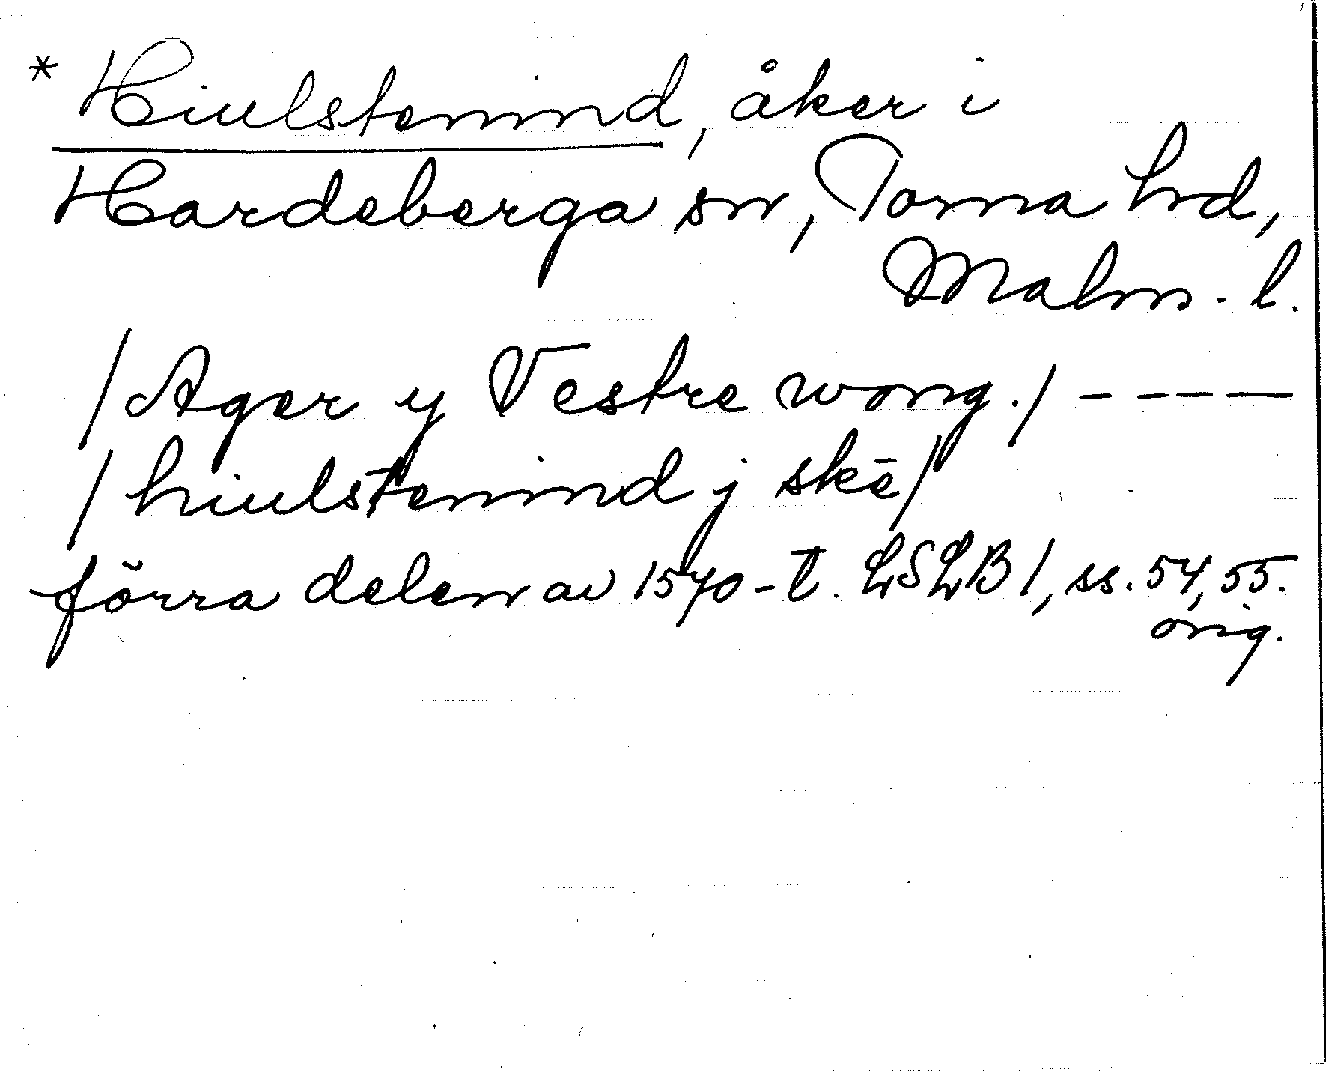 * Hiulstenind, åker i
Hardeberga sn, Torna hrd,
Malm. l.
/Ager y Vestre wong./ ----
/hiulstenind j skē/
förra delen av 1570-t. LSLB 1, ss. 54, 55.
orig.